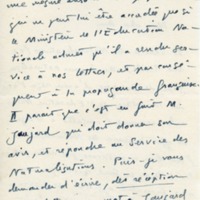 une mesure
qui ne peut lui être accordée que si
le Ministère de l'Education Na-
tionale admet qu'il a rendu ser-
vice à nos lettres, et par consé-
quent à la propagande française.
Il paraît que c'est en fait M.
Jaujard qui doit donner son
avis, et répondre au Service des
Naturalisations. Puis-je vous
demander d'écrire, dès réception
à Jaujard